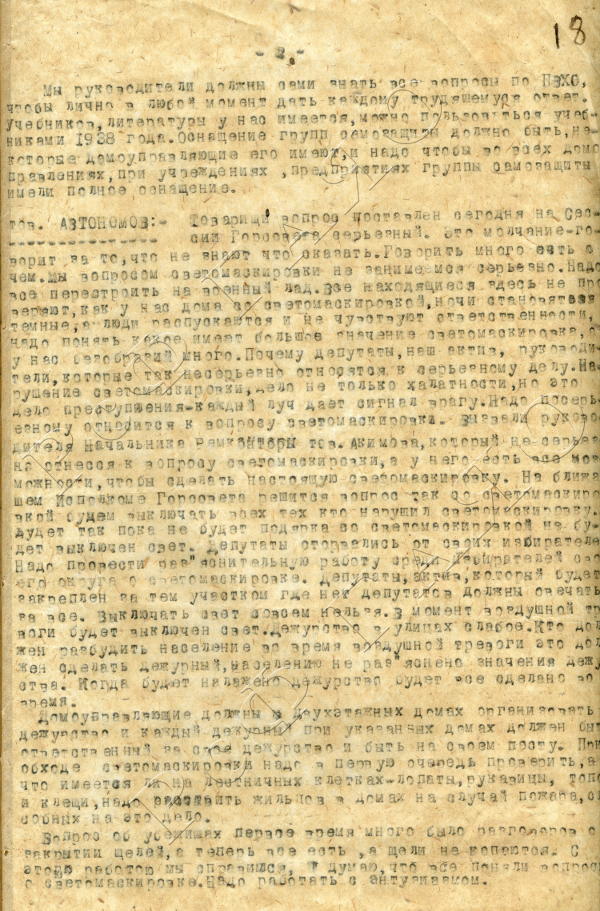 18
- 2. -
Мы руководители должны сами знать все вопросы по ПВХО,
чтобы лично в любой момент дать каждому трудящемуся ответ.
Учебников, литературы у нас имеется, можно пользоваться учеб-
никами 1938 года. Оснащение групп самозащиты должно быть, не-
которые домоуправляющие его имеют, и надо чтобы во всех домо
правлениях, при учреждениях , предприятиях группы самозащиты
имели полное оснащение.
тов. АВТОНОМОВ:- Товарищи вопрос поставлен сегодня на Сес-
сии Горсовета серьезный. Это молчание-го-
ворит за то, что не знают что сказать. Говорить много есть о
чем. Мы вопросом светомаскировки не занимаемся серьезно. Надо
все перестроить на военный лад. Все находящиеся здесь не про
веряют, как у нас дома со светомаскировкой, ночи становятся
темные, а люди распускаются и не чувствуют ответственности,
надо понять какое имеет большое значение светомаскировка, а
у нас безобразий много. Почему депутаты, наш актив, руководи-
тели, которые так несерьезно относятся к серьезному делу. На-
рушение светомаскировки, дело не только халатности, но это
дело преступления-каждый луч дает сигнал врагу. Надо посерь
езному относится к вопросу светомаскировки. Вызвали руково-
дителя Начальника Ремконторы тов. Акимова, который не серьез
но отнесся к вопросу светомаскировки, а у него есть все воз
можности, чтобы сделать настоящую светомаскировку. На ближа
шем Исполкоме Горсовета решится вопрос так со светомаскиро
вкой будем выключать всех тех кто нарушил светомаскировку.
Будет так пока не будет порядка со светомаскировкой не бу-
дет выключен свет. Депутаты оторвались от своих избирателе
Надо провести раз"яснительную работу среди избирателей сво
его округа о светомаскировке. Депутаты, актив, который будет
закреплен за тем участком где нет депутатов должны овечать
за все. Выключать свет совсем нельзя. В момент воздушной тр
воги будет выключен свет. Дежурство в улицах слабое. Кто дол
жен разбудить население во время воздушной тревоги это дол
жен сделать дежурный, населению не раз"яснено значения дежу
ства. Когда будет налажено дежурство будет все сделано во
время.
Домоуправляющие должны в двухэтажных домах организовать
дежурство и каждый дежурный при указанных домах должен быт
ответственный за свое дежурство и быть на своем посту. При
обходе светомаскировки надо в первую очередь проверить, а
что имеется ли на лестничных клетках-лопаты, рукавицы, топо
и клещи, надо расставить жильцов в домах на случай пожара, сп
собных на это дело.
Вопрос об убежищах первое время много было разговоров о
закрытии щелей, а теперь все есть , а щели не копаются. С
этою работою мы справимся, я думаю, что все поняли вопрос
о светомаскировке. Надо работать с энтузиазмом.